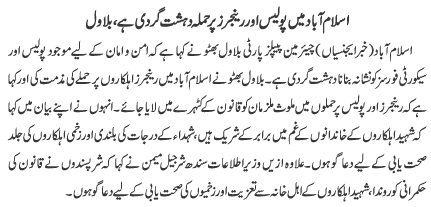 اسلام آباد میں پولیس اور رینجرز پر حملہ دہشت گردی ہے، بلاول
اسلام آباد (خبر ایجنسیاں) چیئرمین پیپلز پارٹی بلاول بھٹو نے کہا ہے کہ امن و امان کے لیے موجود پولیس اور
سیکورٹی فورسز کو نشانہ بنانا دہشت گردی ہے۔ بلاول بھٹو نے اسلام آباد میں رینجرز اہلکاروں پر حملے کی مذمت کی اور کہا
ہے کہ رینجرز اور پولیس پر حملوں میں ملوث ملزمان کو قانون کے کٹہرے میں لایا جائے۔ انہوں نے اپنے بیان میں کہا
کہ شہید اہلکاروں کے خاندانوں کے غم میں برابر کے شریک ہیں، شہداء کے درجات کی بلندی اور زخمی اہلکاروں کی جلد
صحت یابی کے لیے دعا گو ہوں۔ علاوہ ازیں وزیر اطلاعات سندھ شرجیل میمن نے کہا کہ شرپسندوں نے قانون کی
حکمرانی کو روندا، شہید اہلکاروں کے اہل خانہ سے تعزیت اور زخمیوں کی صحت یابی کے لیے دعا گو ہوں۔